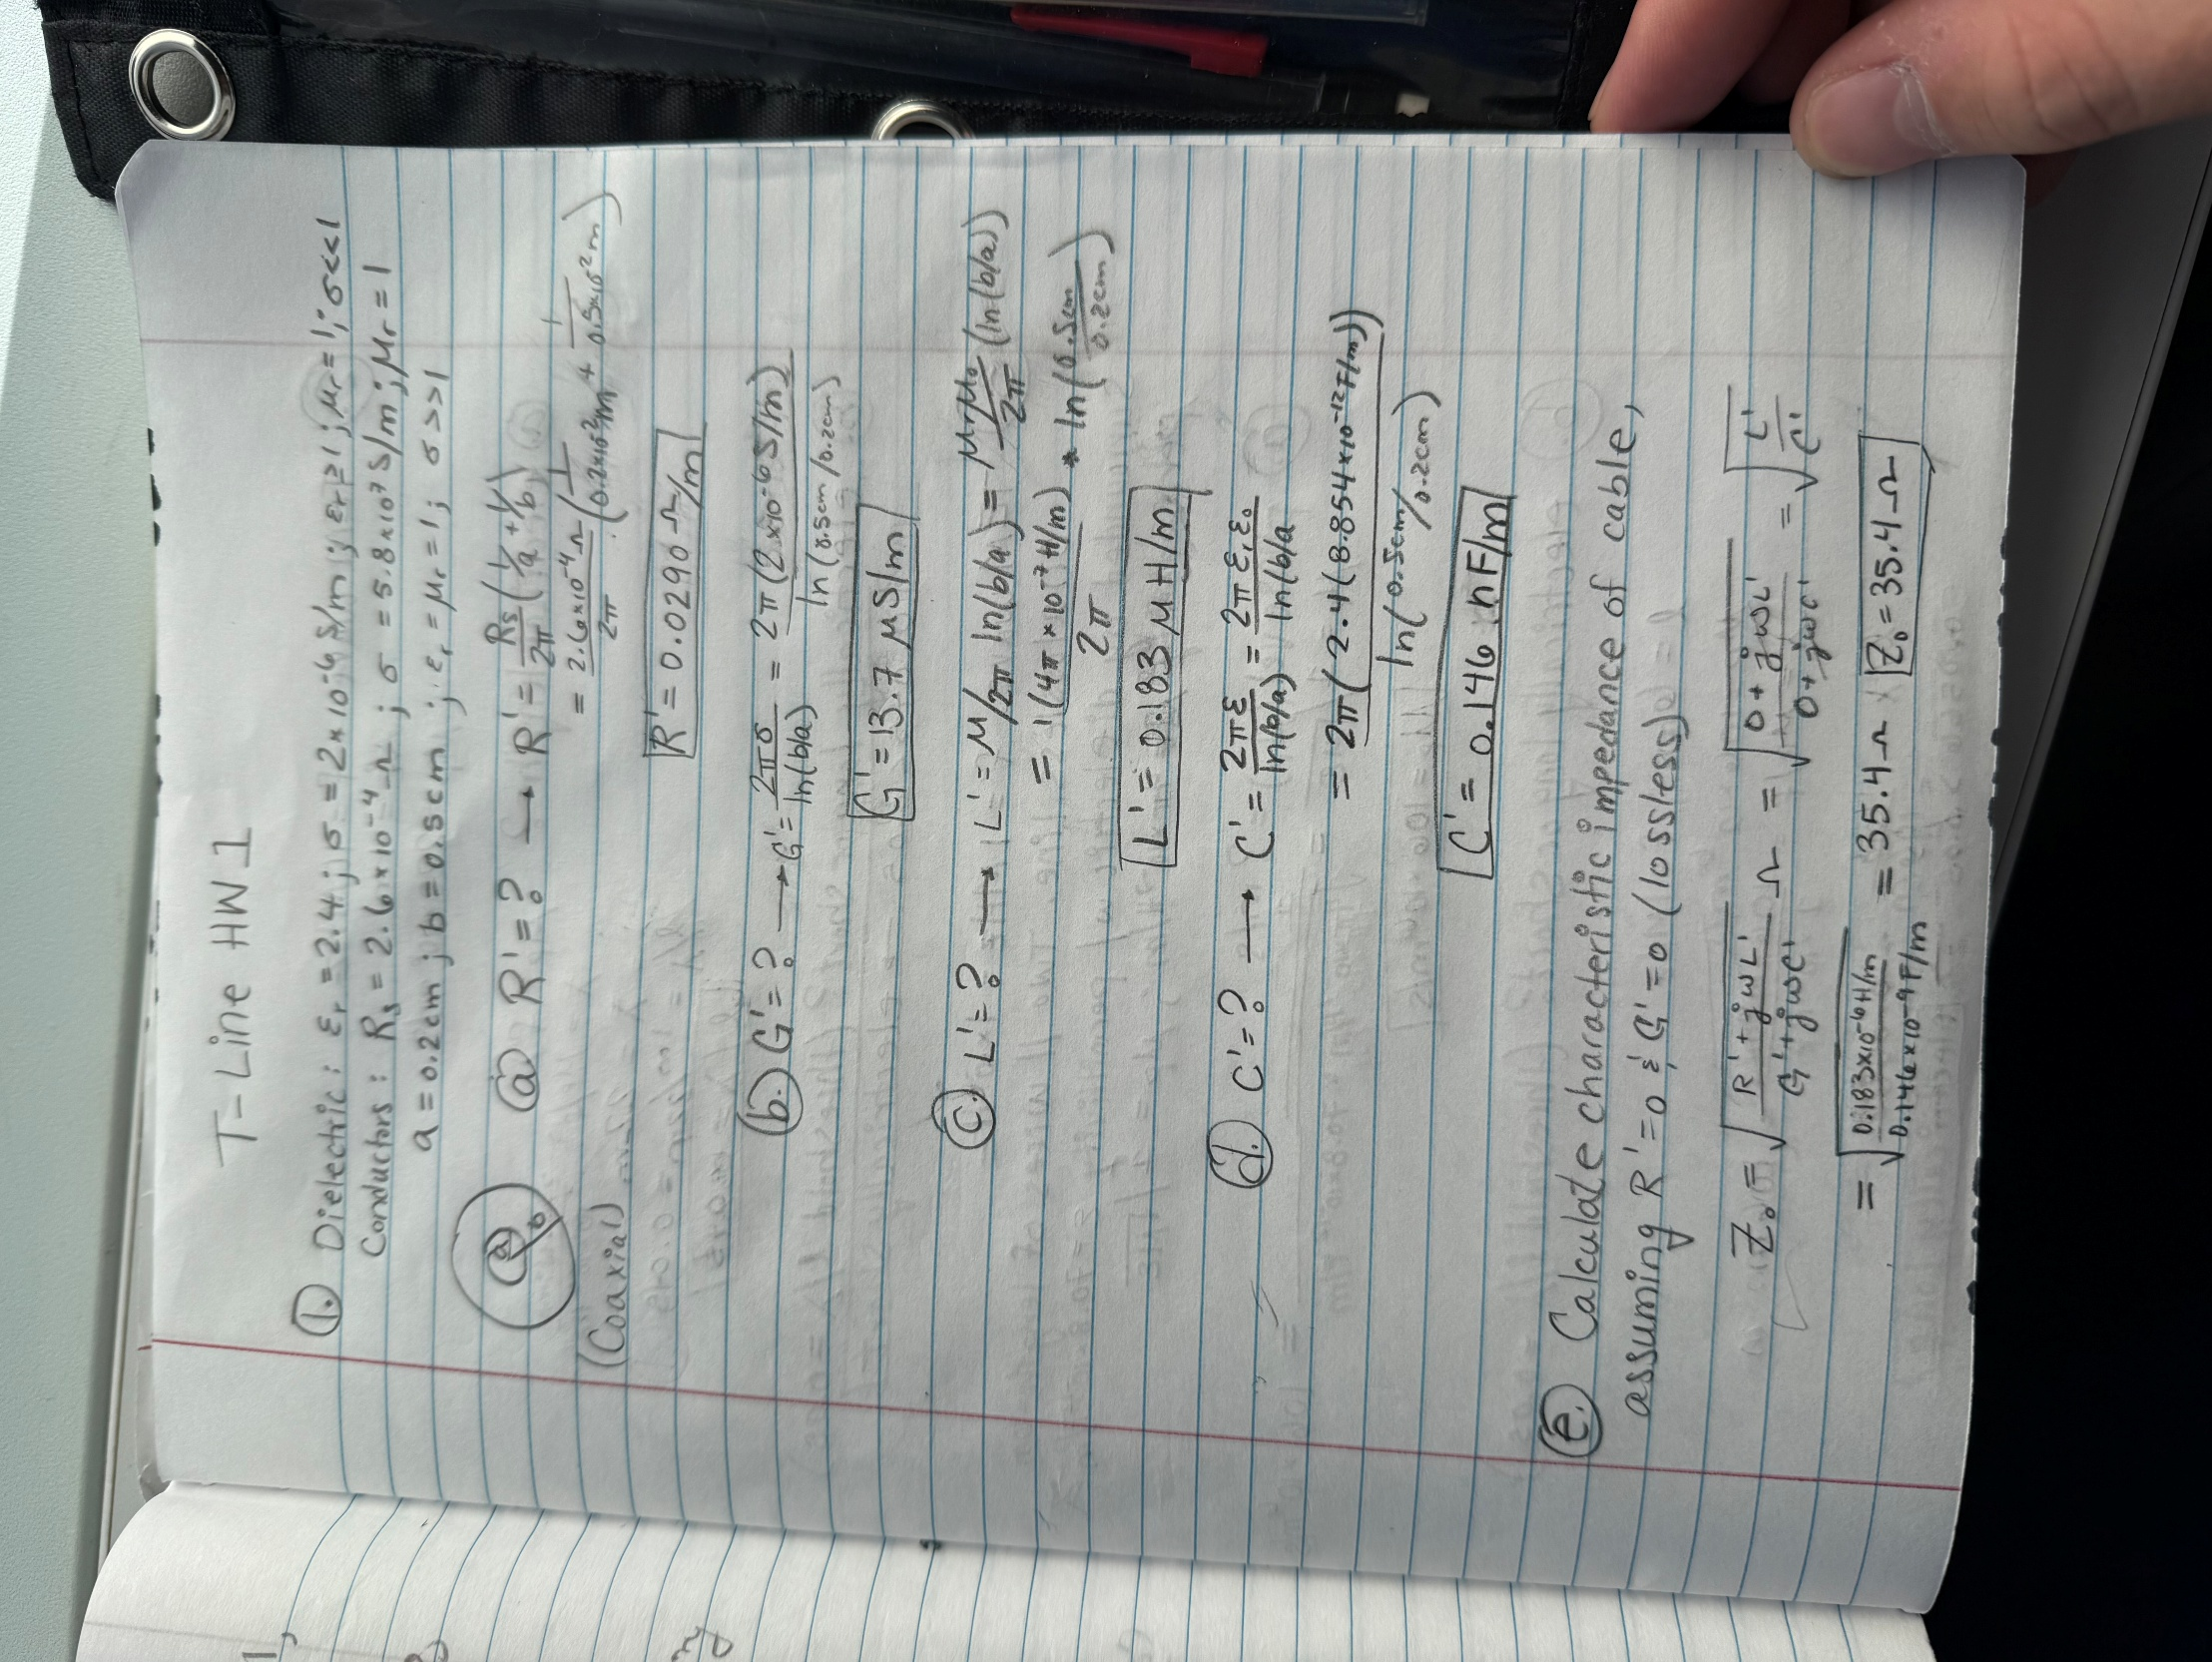 T-Line HW 1
1. Dielectric: εr = 2.4; σ = 2×10⁻⁶ S/m; εr ≥ 1; μr = 1; σ<<1
Conductors: Rs = 2.6×10⁻⁴ Ω; σ = 5.8×10⁷ S/m; μr = 1
a = 0.2cm; b = 0.5cm; εr = μr = 1; σ >> 1
a b (Coaxial)
a R' = ? → R' = Rs/2π (1/a + 1/b)
= 2.6×10⁻⁴ Ω / 2π · (1/0.2×10⁻²m + 1/0.5×10⁻²m)
R' = 0.0290 Ω/m
b. G' = ? → G' = 2πσ/ln(b/a) = 2π(2×10⁻⁶ S/m) / ln(0.5cm/0.2cm)
G' = 13.7 μS/m
c. L' = ? → L' = μ/2π ln(b/a) = μrμ₀/2π (ln(b/a))
= 1(4π×10⁻⁷ H/m) / 2π * ln(0.5cm/0.2cm)
L' = 0.183 μH/m
d. C' = ? → C' = 2πε/ln(b/a) = 2πεrε₀/ln(b/a
= 2π(2.4(8.854×10⁻¹² F/m)) / ln(0.5cm/0.2cm)
C' = 0.146 nF/m
e. Calculate characteristic impedance of cable,
assuming R' = 0 & G' = 0 (lossless)
Z₀ = √(R' + jωL' / G' + jωC') Ω = √(0 + jωL' / 0 + jωC') = √(L'/C')
= √(0.183×10⁻⁶ H/m / 0.146×10⁻⁹ F/m) = 35.4 Ω Z₀ = 35.4 Ω